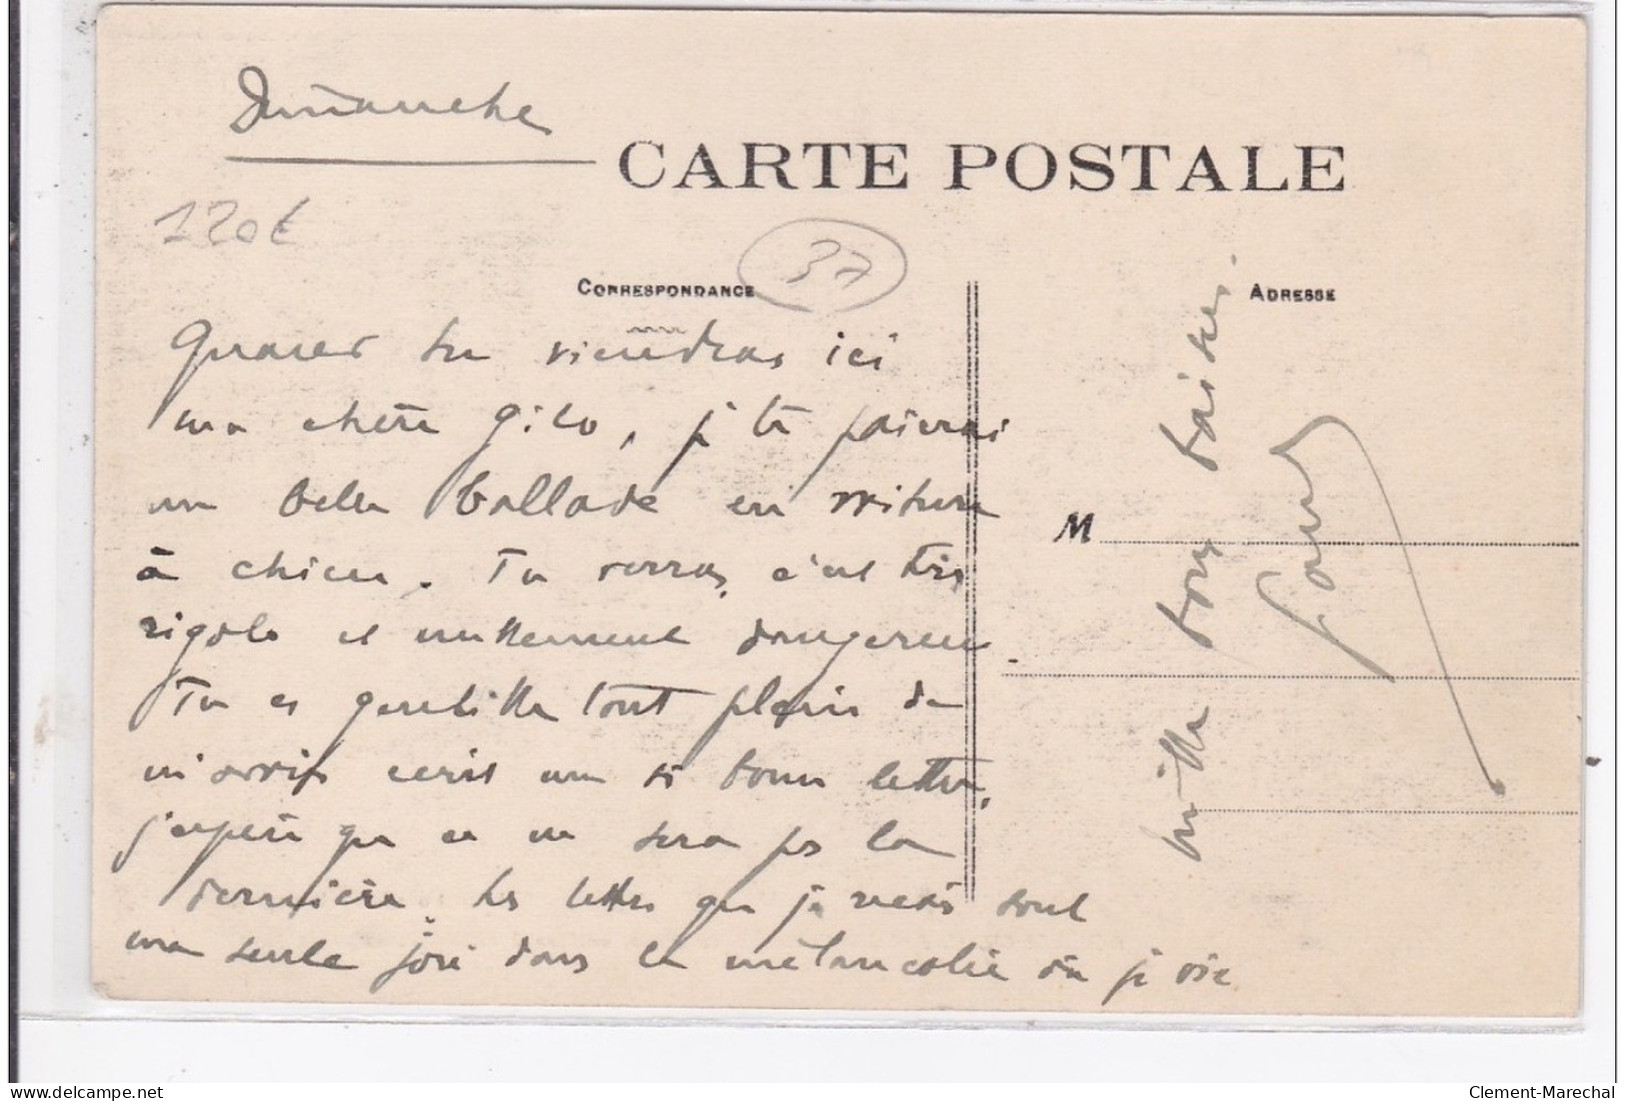 Dimanche
120€
CARTE POSTALE
37
CORRESPONDANCE
ADRESSE
Quand tu viendras ici
ma chère Gilo, je te paierai
une belle ballade en voiture
à chien. Tu verras, c'est très
rigolo et nullement dangereux
Tu es gentille tout plein de
m'avoir écrit une si bonne lettre,
j'espère que ce ne sera pas la
dernière. Les lettres que je reçois sont
ma seule joie dans la mélancolie où je vis
M
mille bons baisers